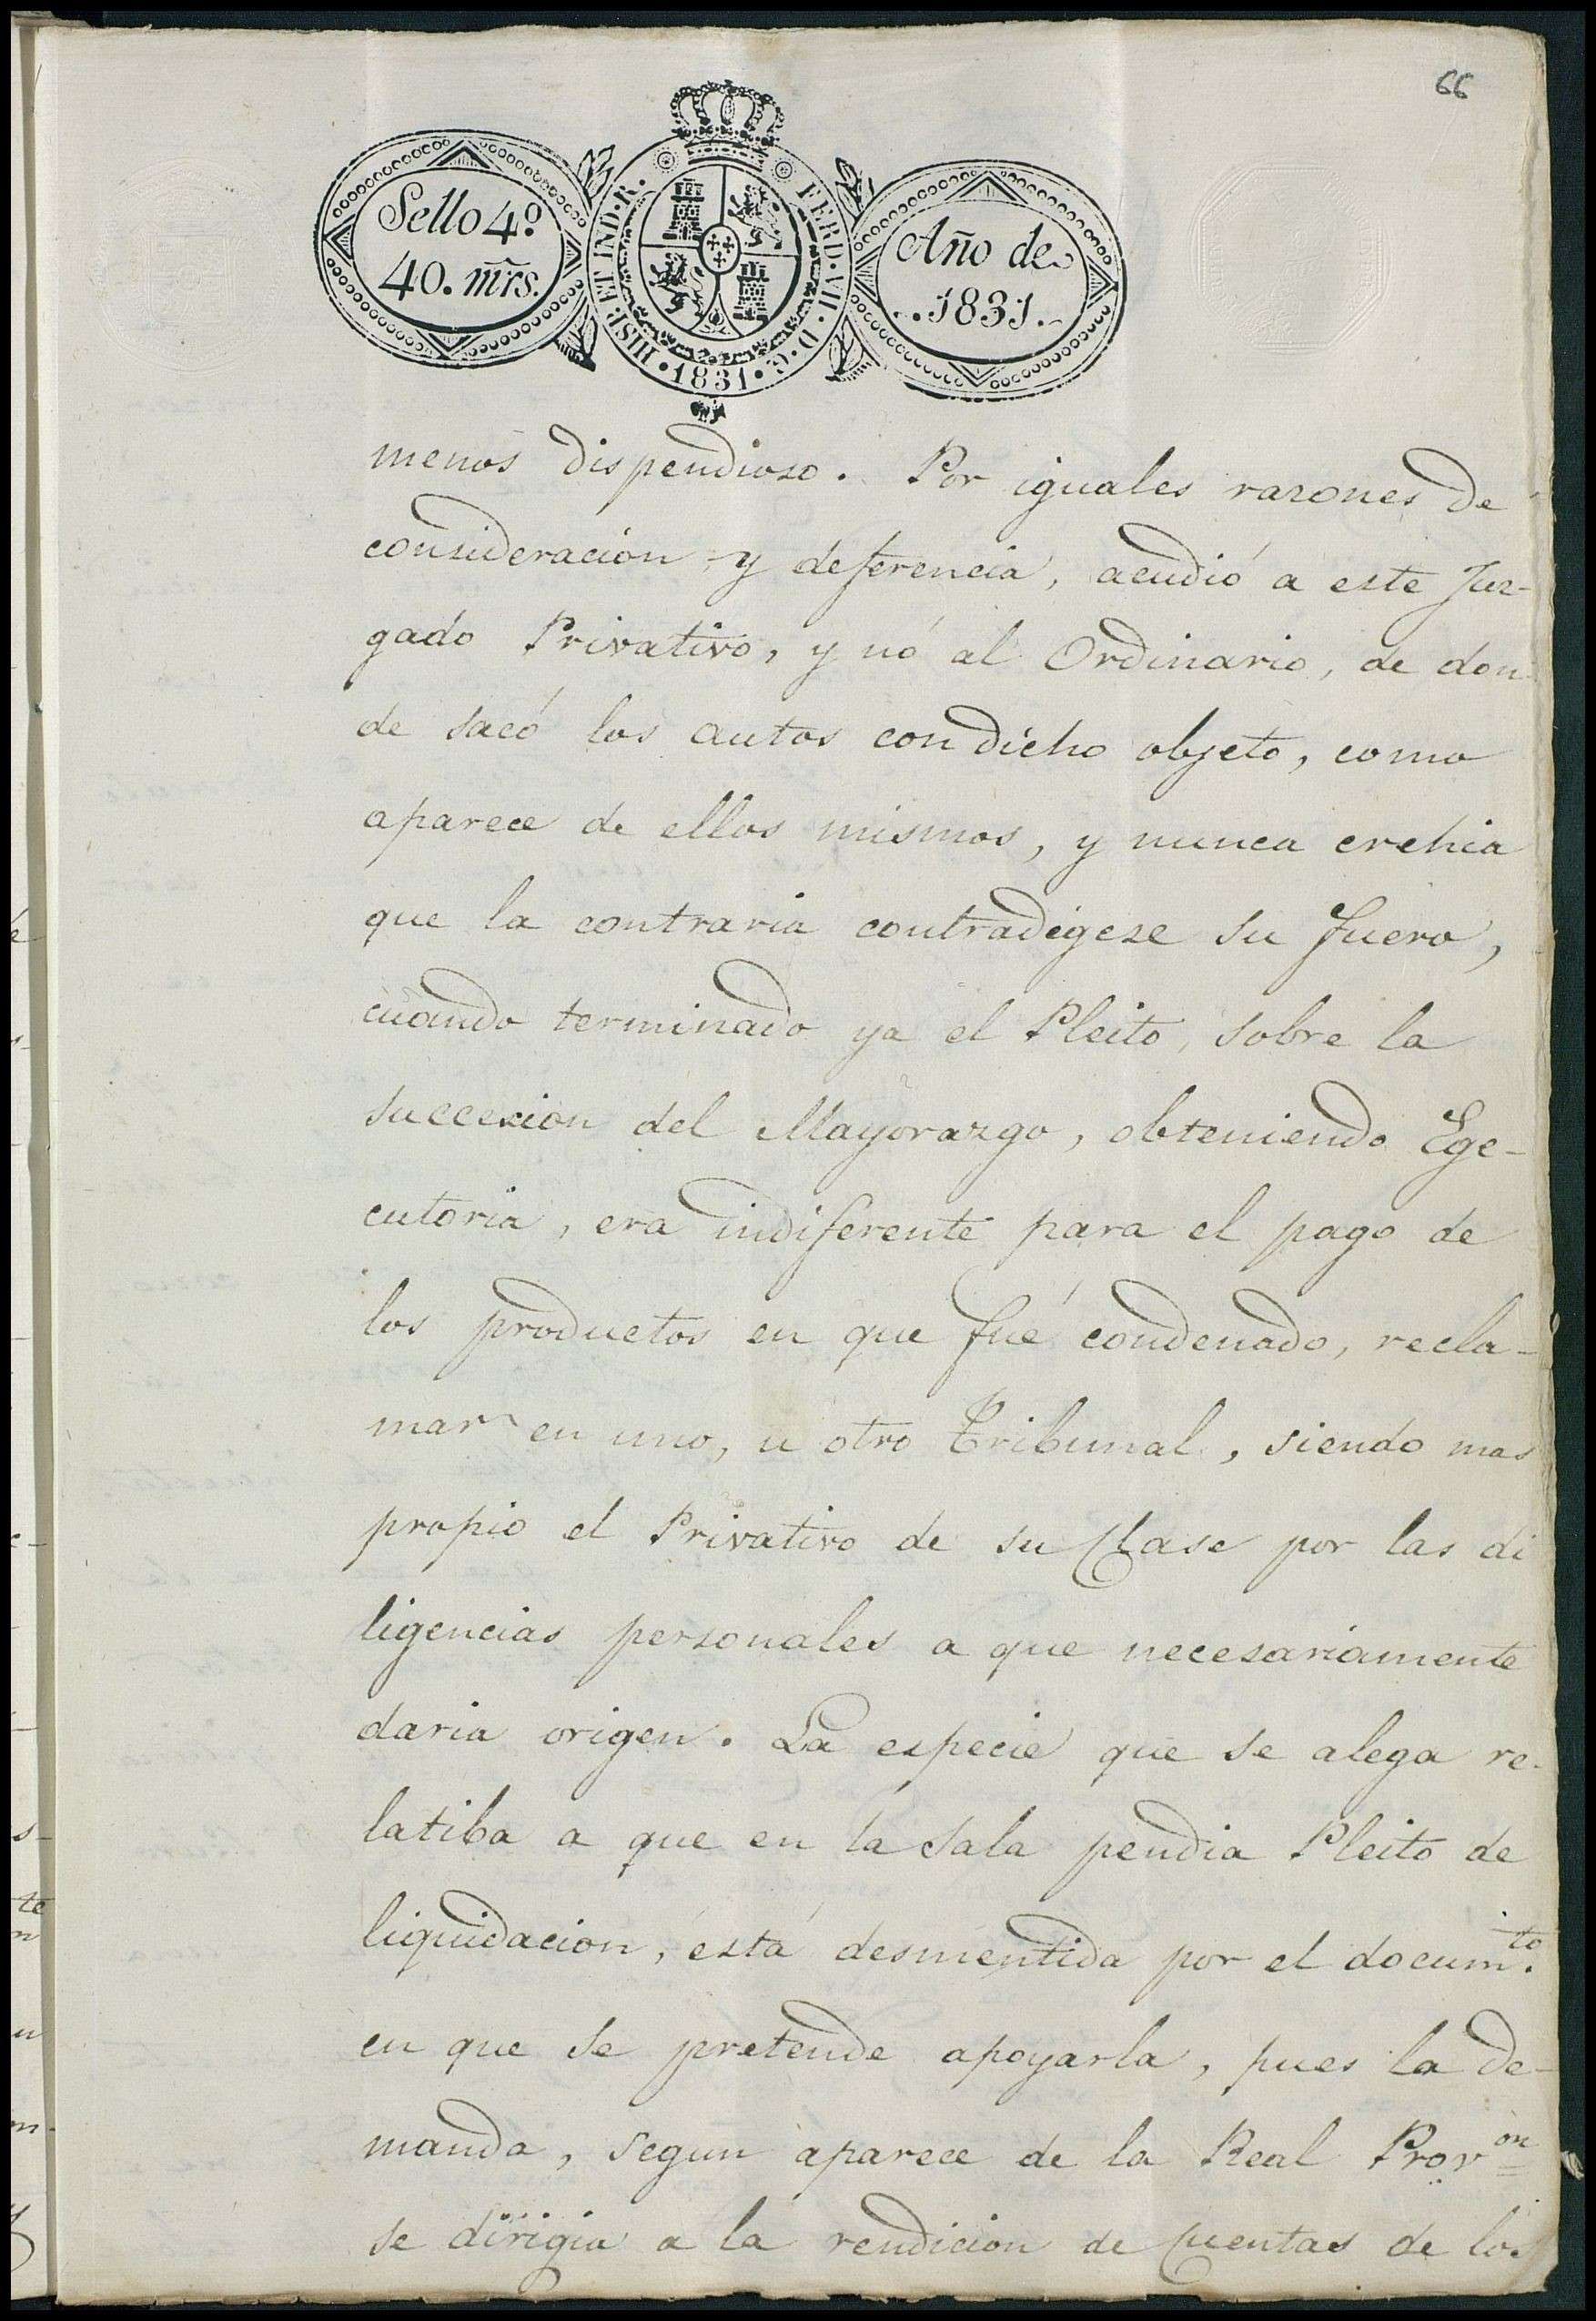 66
Sello 4º
40. mrs.
HISP. ET IND. R.
FERD. VII. D. G.
1831
Año de
1831.
menos dispendioso. Por iguales razones de
consideración y deferencia, acudió a este Juz-
gado Privativo, y nó al Ordinario, de don
de sacó los autos con dicho objeto, como
aparece de ellos mismos, y nunca crehia
que la contraria contradigese su fuero,
cuando terminado ya el Pleito, sobre la
succesion del Mayorazgo, obteniendo Ege-
cutoria, era indiferente para el pago de
los productos en que fué condenado, recla-
mar en uno, u otro Tribunal, siendo mas
propio el Privativo de su Clase por las di
ligencias personales a que necesariamente
daria origen. La especie que se alega re-
latiba a que en la sala pendia Pleito de
liquidacion, está desmentida por el docum.to
en que se pretende apoyarla, pues la de-
manda, segun aparece de la Real Prov.on
se dirigia a la rendicion de Cuentas de los